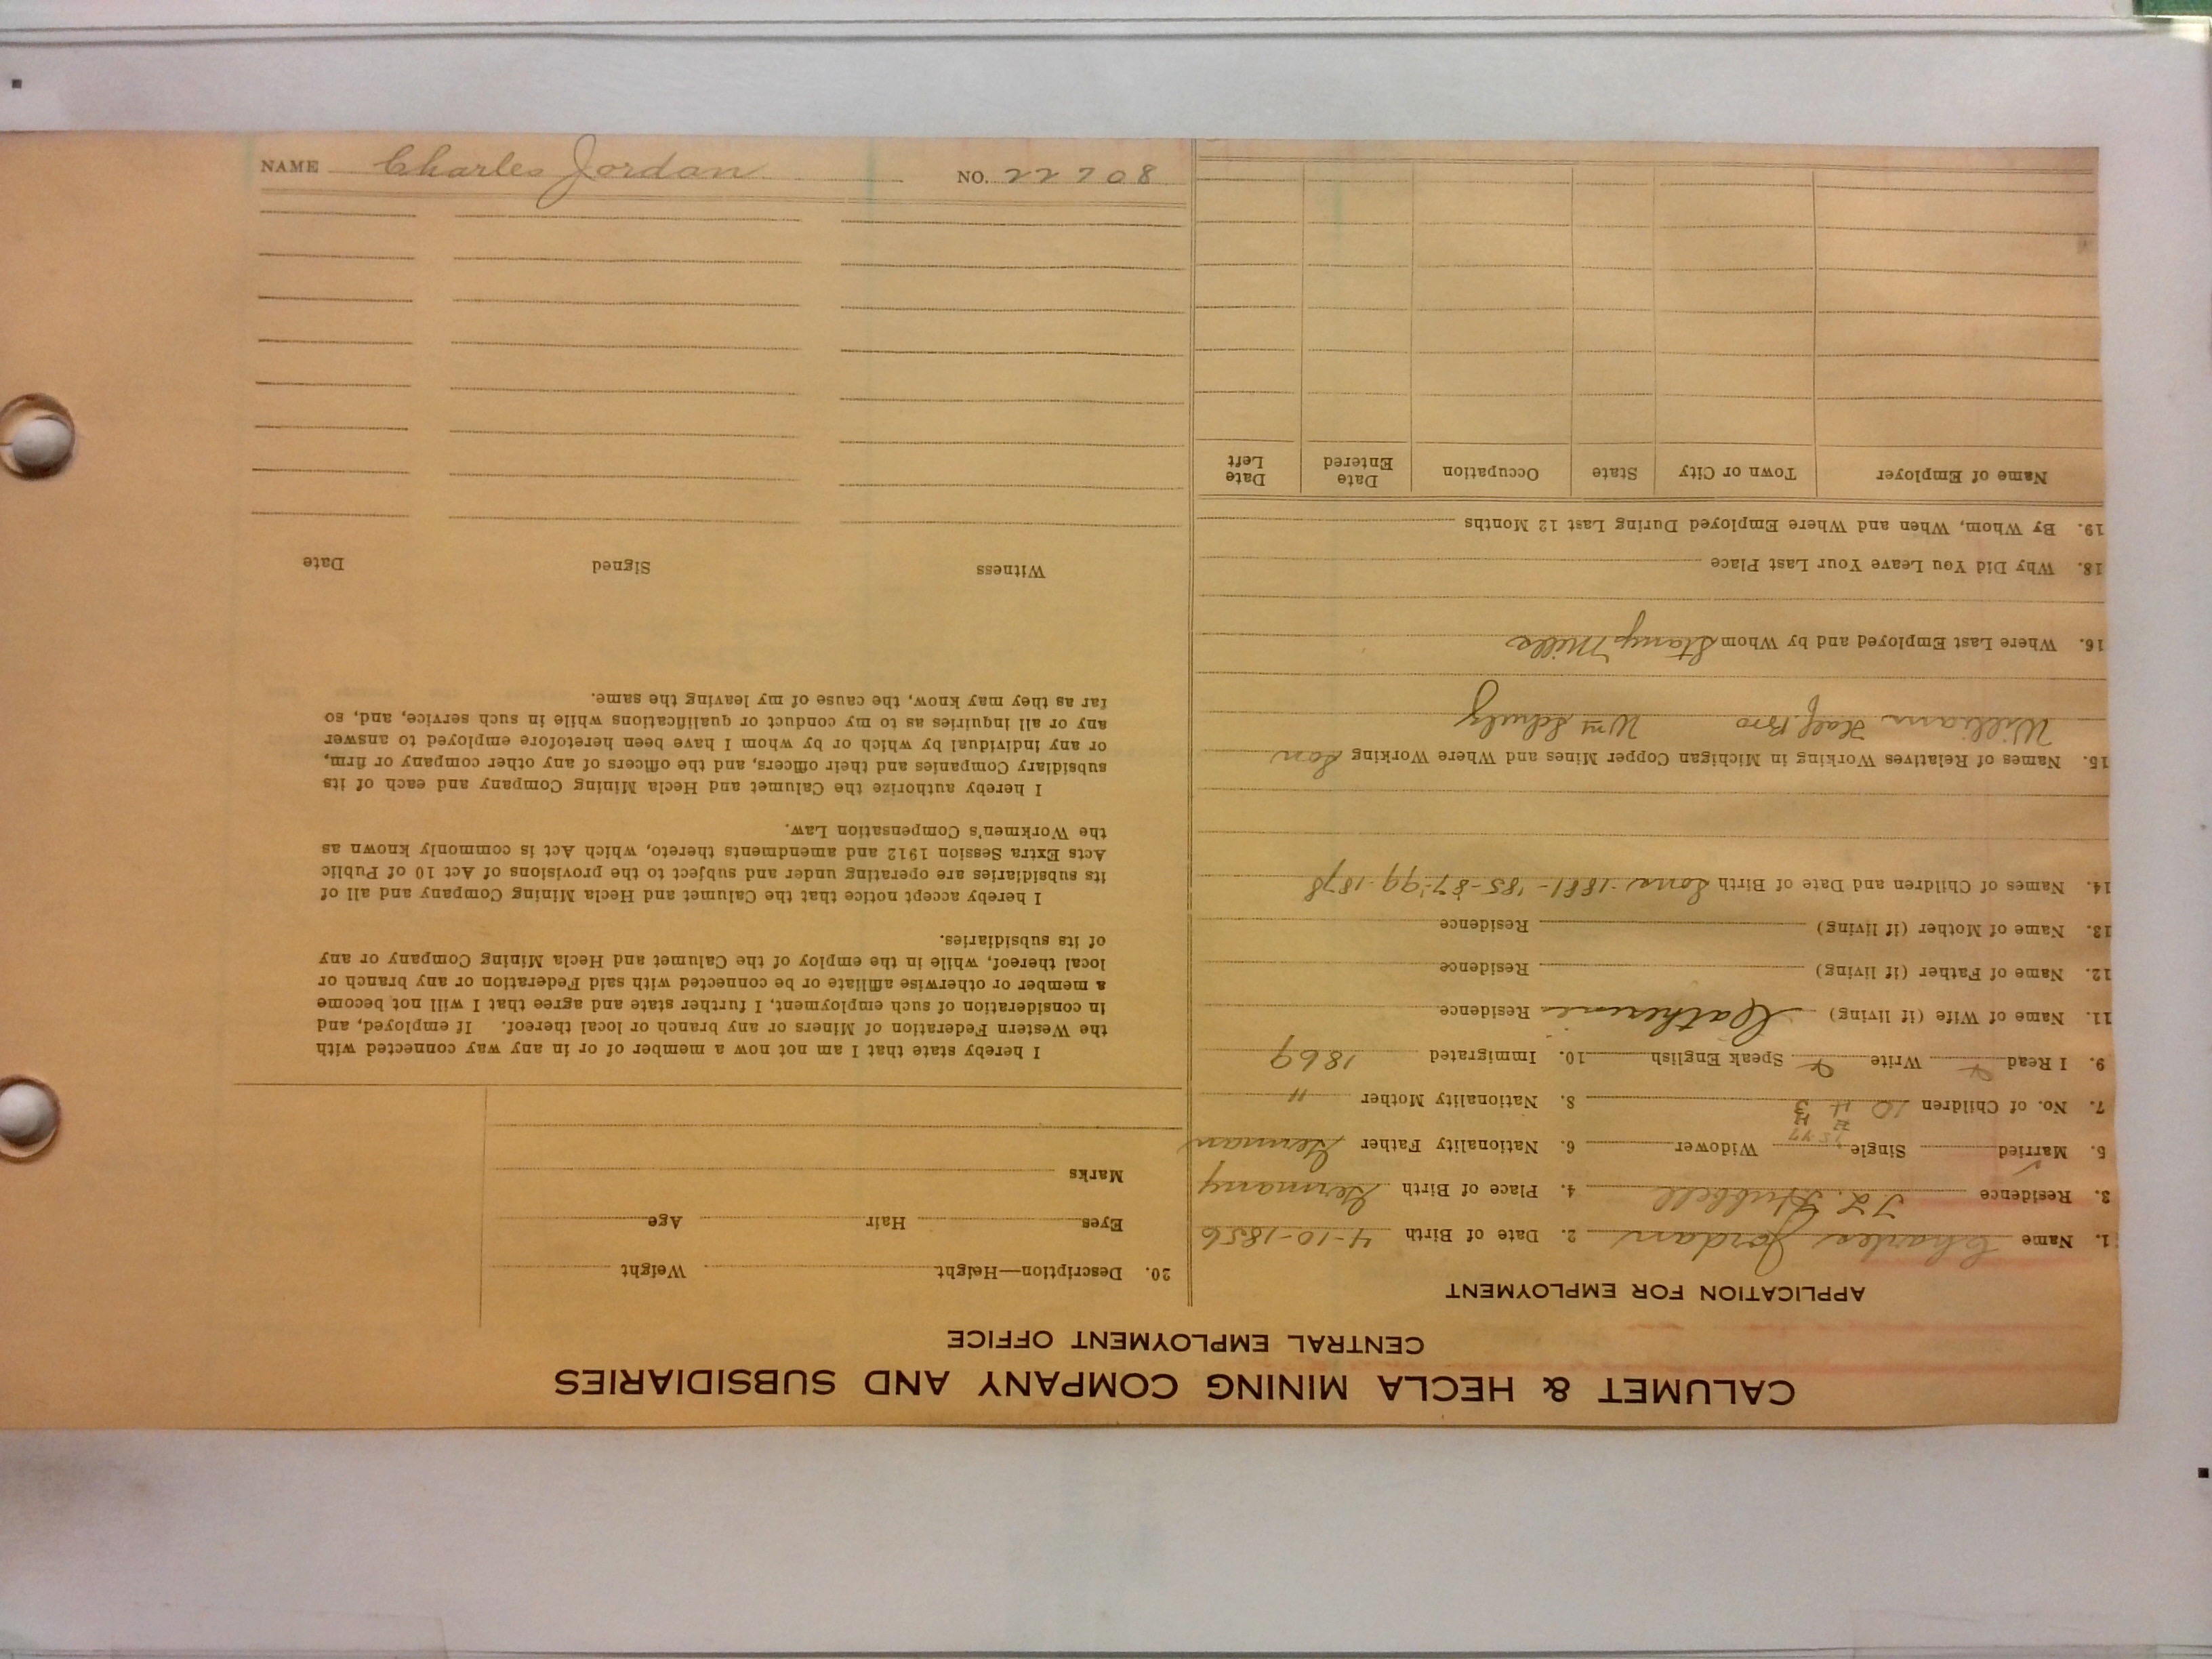 CALUMET & HECLA MINING COMPANY AND SUBSIDIARIES
CENTRAL EMPLOYMENT OFFICE
APPLICATION FOR EMPLOYMENT
1. Name Charles Jordan 2. Date of Birth 4-10-1856
3. Residence T.L. Hubbell 4. Place of Birth Germany
5. Married Single Widower 6. Nationality Father German
7. No. of Children 10 8. Nationality Mother "
9. I Read Write Speak English 10. Immigrated 1869
11. Name of Wife (if living) Catherine Residence
12. Name of Father (if living) Residence
13. Name of Mother (if living) Residence
14. Names of Children and Date of Birth Sons 1881-'85-87-'99. 1878
15. Names of Relatives Working in Michigan Copper Mines and Where Working Son
William Half Bro Wm Schulz
16. Where Last Employed and by Whom Stamp Mills
18. Why Did You Leave Your Last Place
19. By Whom, When and Where Employed During Last 12 Months
Name of Employer Town or City State Occupation Date Entered Date Left
20. Description—Height Weight
Eyes Hair Age
Marks
I hereby state that I am not now a member of or in any way connected with
the Western Federation of Miners or any branch or local thereof. If employed, and
in consideration of such employment, I further state and agree that I will not become
a member or otherwise affiliate or be connected with said Federation or any branch or
local thereof, while in the employ of the Calumet and Hecla Mining Company or any
of its subsidiaries.
I hereby accept notice that the Calumet and Hecla Mining Company and all of
its subsidiaries are operating under and subject to the provisions of Act 10 of Public
Acts Extra Session 1912 and amendments thereto, which Act is commonly known as
the Workmen's Compensation Law.
I hereby authorize the Calumet and Hecla Mining Company and each of its
subsidiary Companies and their officers, and the officers of any other company or firm,
or any individual by which or by whom I have been heretofore employed to answer
any or all inquiries as to my conduct or qualifications while in such service, and, so
far as they may know, the cause of my leaving the same.
Witness Signed Date
NAME Charles Jordan NO. 22708